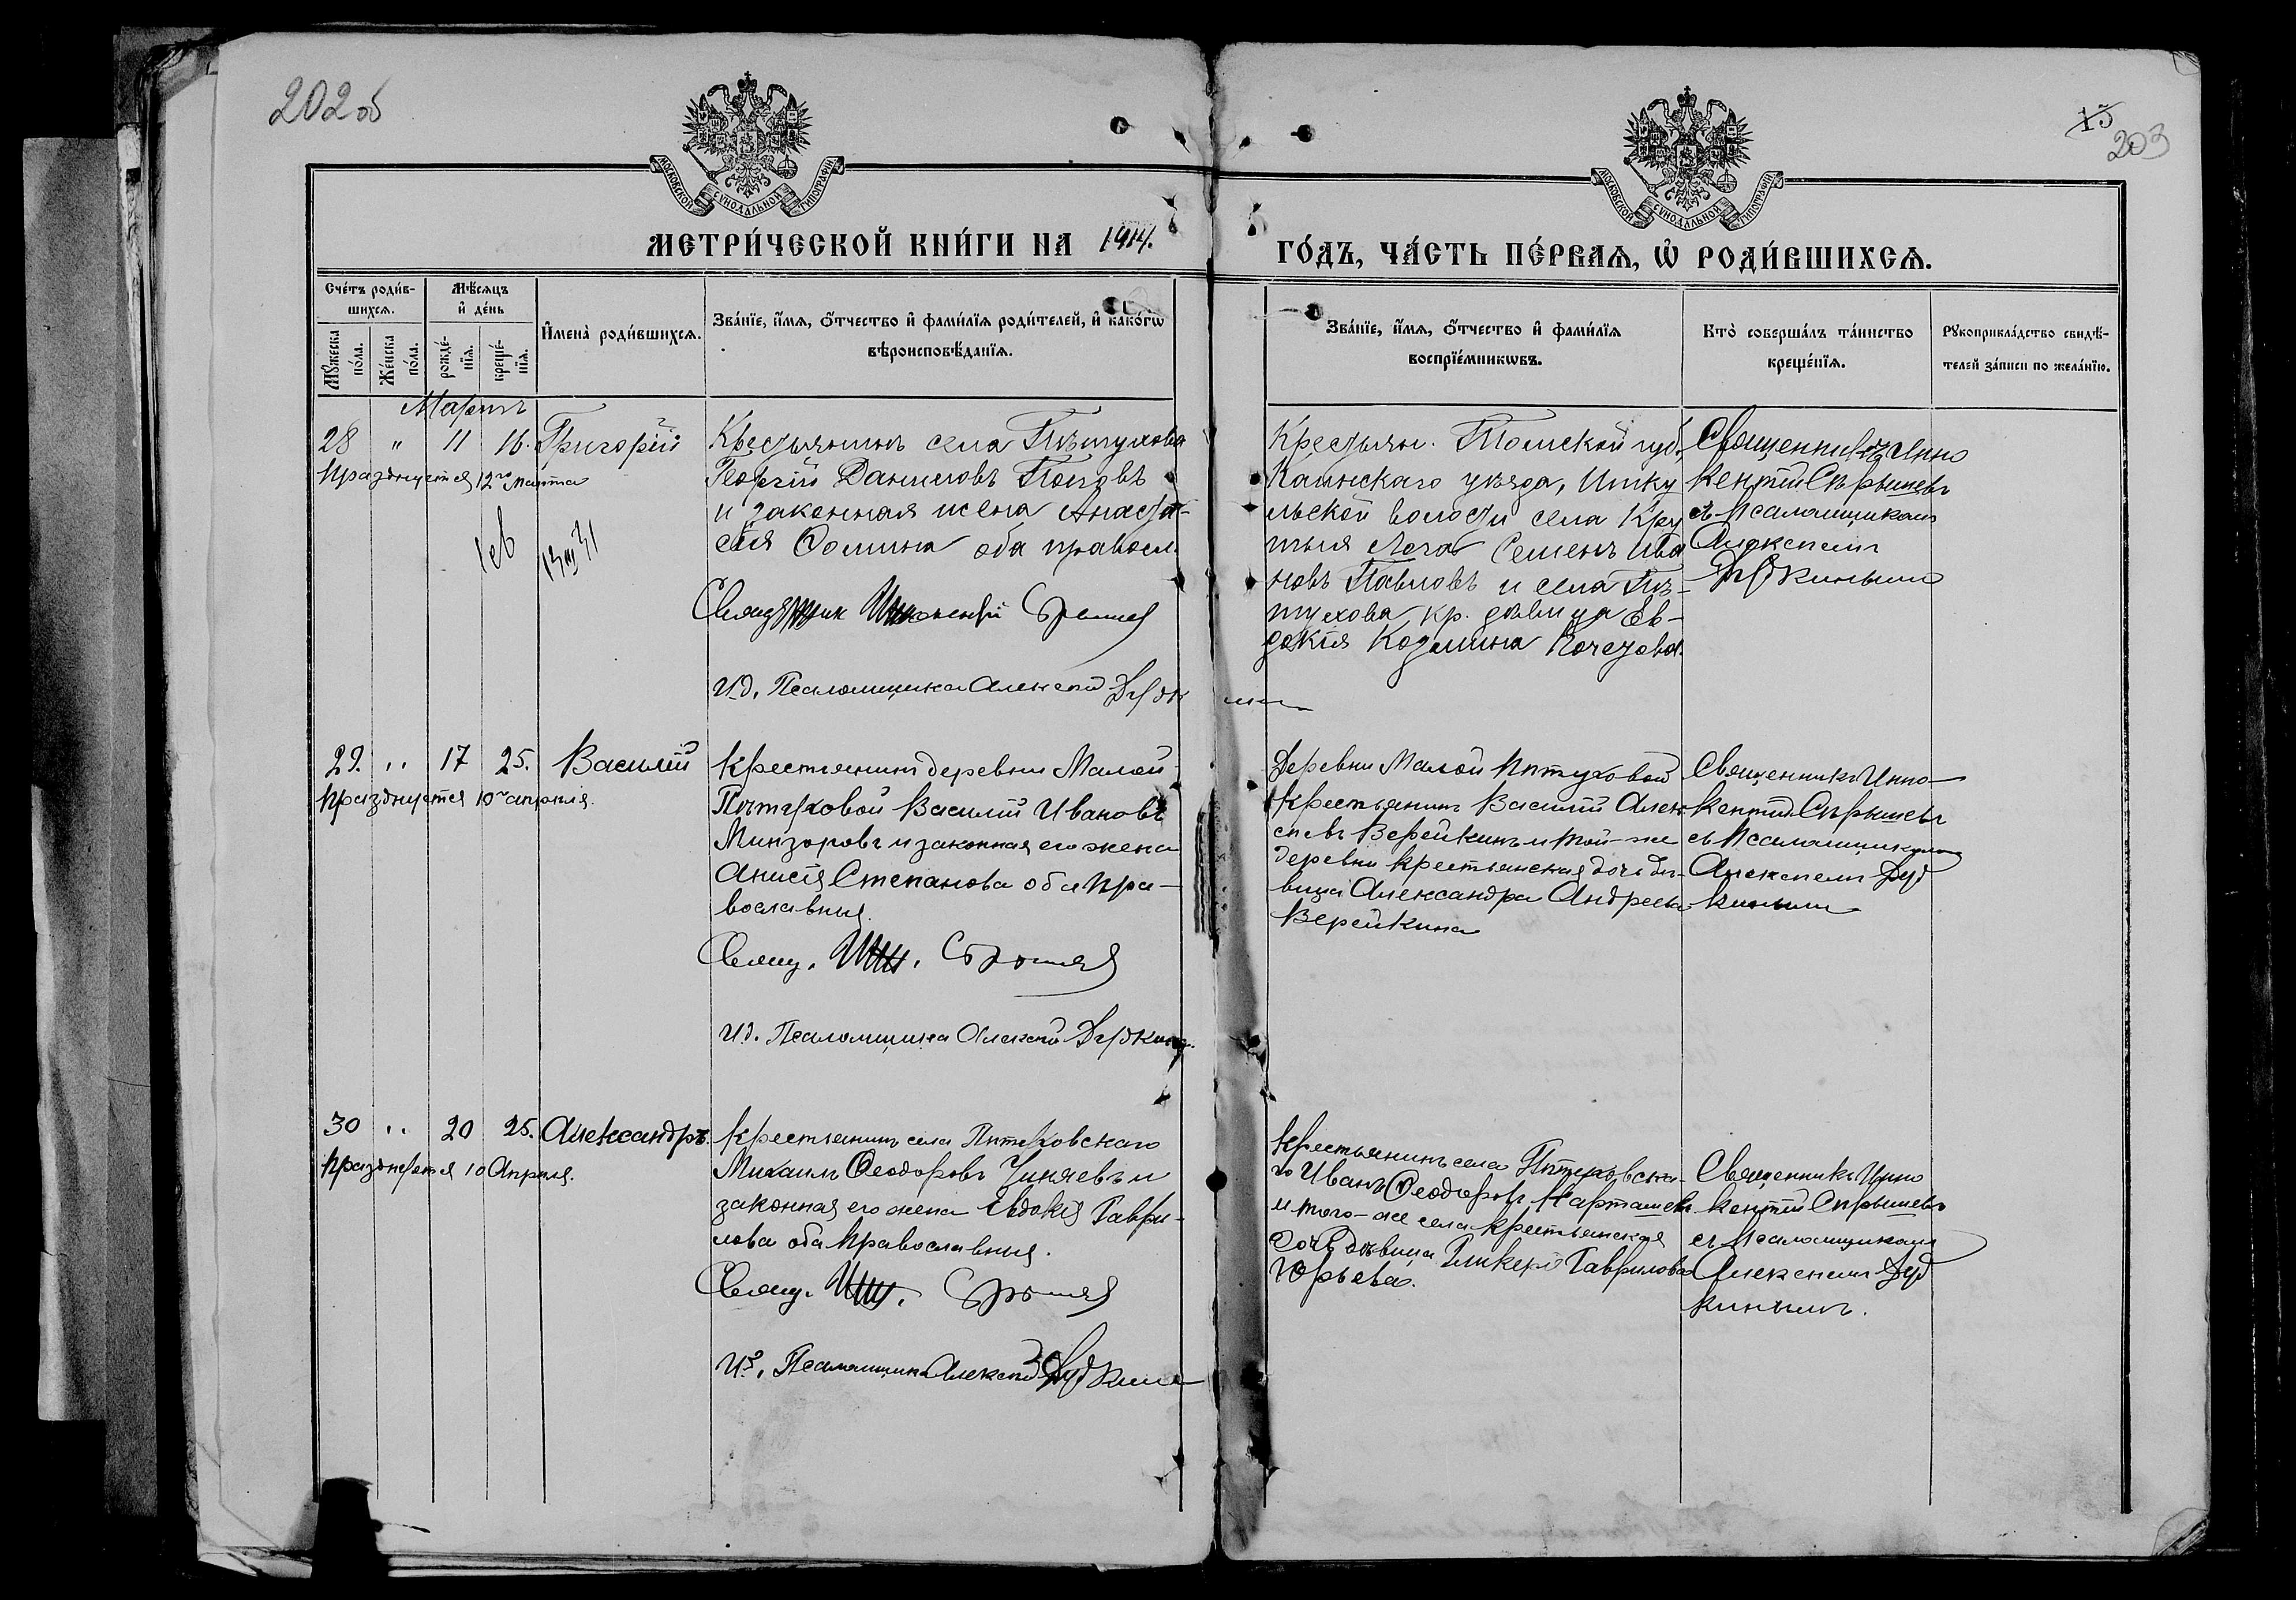 202об
15
203
МОСКОВСКОЙ СѴНОДАЛЬНОЙ ТИПОГРАФІИ
МОСКОВСКОЙ СѴНОДАЛЬНОЙ ТИПОГРАФІИ
МЕТРИ́ЧЕСКОЙ КНИ́ГИ НА 1914.
ГО́ДЪ, ЧА́СТЬ ПЕ́РВАѦ, Ѡ҆ РОДИ́ВШИХСѦ.
Сче́тъ роди́в-
шихсѧ.
Мꙋ́жеска по́ла.
Же́нска по́ла.
Мѣ́сѧцъ
и҆ де́нь
рожде́-
нїѧ.
креще́-
нїѧ.
И҆мена̀ роди́вшихсѧ.
Зва́нїе, и҆́мѧ, ѻ҆́тчество и҆ фами́лїѧ роди́телей, и҆ како́гѡ
вѣроисповѣ́данїѧ.
Зва́нїе, и҆́мѧ, ѻ҆́тчество и҆ фами́лїѧ
воспрїе́мникѡвъ.
Кто̀ соверша́лъ та́инство
креще́нїѧ.
Рꙋкоприкла́дство свидѣ́-
телей за́писи по жела́нїю.
Мартъ
28 " 11 16. Григорій
празднуется 12го марта
Крестьянинъ села Пѣтухова
Георгій Даниловъ Поповъ
и законная жена Анаста-
сія Ѳомина оба правосл.
Священник Иннокентій Сѣрышев
И.д. Псаломщика Алексей Дудкин
Крестьян. Томской губ.
Каинскаго уѣзда, Итку
льской волости села Кру
тыя Лога Семенъ Ива
новъ Павловъ и села Пѣ-
тухова кр. дѣвица Ев-
докія Козмина Кочетова.
Священникъ Инно
кентій Сѣрышевъ
съ Псаломщикомъ
Алексѣемъ
Дудкинымъ
29. " 17 25. Василій
празднуется 10го апрѣля.
Крестьянинъ деревни Малой
Пѣтуховой Василій Ивановъ
Минзоровъ и законная его жена
Анисія Степанова оба пра-
вославныя.
Свящ. Инн. Сѣрышев
И.д. Псаломщика Алексей Дудкинъ.
Деревни Малой Пѣтуховой
Крестьянинъ Василій Алек
сѣевъ Верейкинъ и той-же
деревни крестьянская дочь дѣ-
вица Александра Андреева
Верейкина
Священникъ Инно-
кентій Сѣрышевъ
съ Псаломщикомъ
Алексѣемъ Дуд
кинымъ
30 " 20 25. Александръ.
празднуется 10 Апрѣля.
Крестьянинъ села Пѣтуховскаго
Михаилъ Ѳеодоровъ Чиняевъ и
законная его жена Евдокія Гаври-
лова оба православныя.
Свящ. Инн. Сѣрышев
И.д. Псаломщика Алексей Дудкин
Крестьянинъ села Пѣтуховска-
го Иванъ Ѳеодоровъ Карташевъ
и того-же села крестьянская
дочь дѣвица Гликерія Гаврилова
Юрьева.
Священникъ Инно
кентій Сѣрышевъ
съ Псаломщикомъ
Алексѣемъ Дуд
кинымъ.